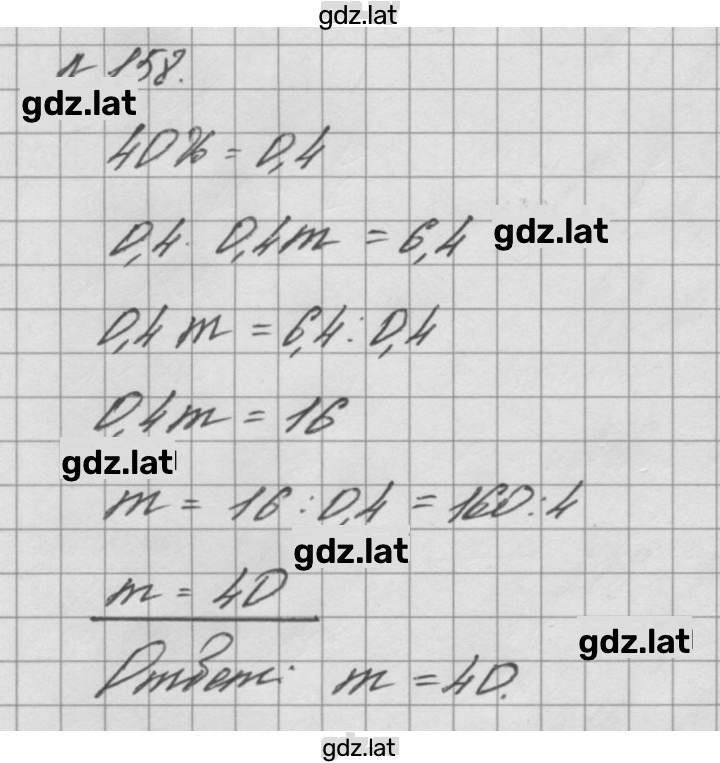 gdz.lat
№ 158.
gdz.lat
40% = 0,4
0,4 · 0,4m = 6,4
gdz.lat
0,4 m = 6,4 : 0,4
0,4m = 16
gdz.lat
m = 16 : 0,4 = 160 : 4
gdz.lat
m = 40
gdz.lat
Ответ: m = 40.
gdz.lat